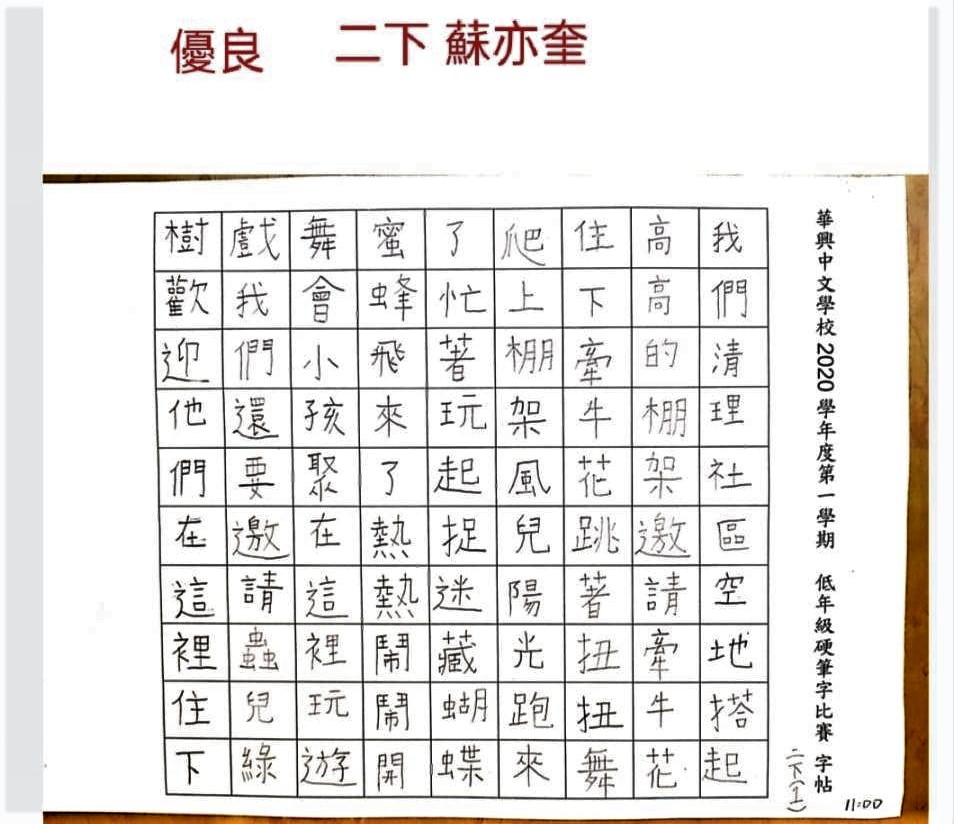 優良 二下 蘇亦奎
華興中文學校2020學年度第一學期 低年級硬筆字比賽 字帖
二下(1)
11:00
我們清理社區空地搭起
高高的棚架邀請牽牛花
住下牽牛花跳著扭扭舞
爬上棚架風兒陽光跑來
了忙著玩起捉迷藏蝴蝶
蜜蜂飛來了熱熱鬧鬧開
舞會小孩聚在這裡玩遊
戲我們還要邀請蟲兒綠
樹歡迎他們在這裡住下